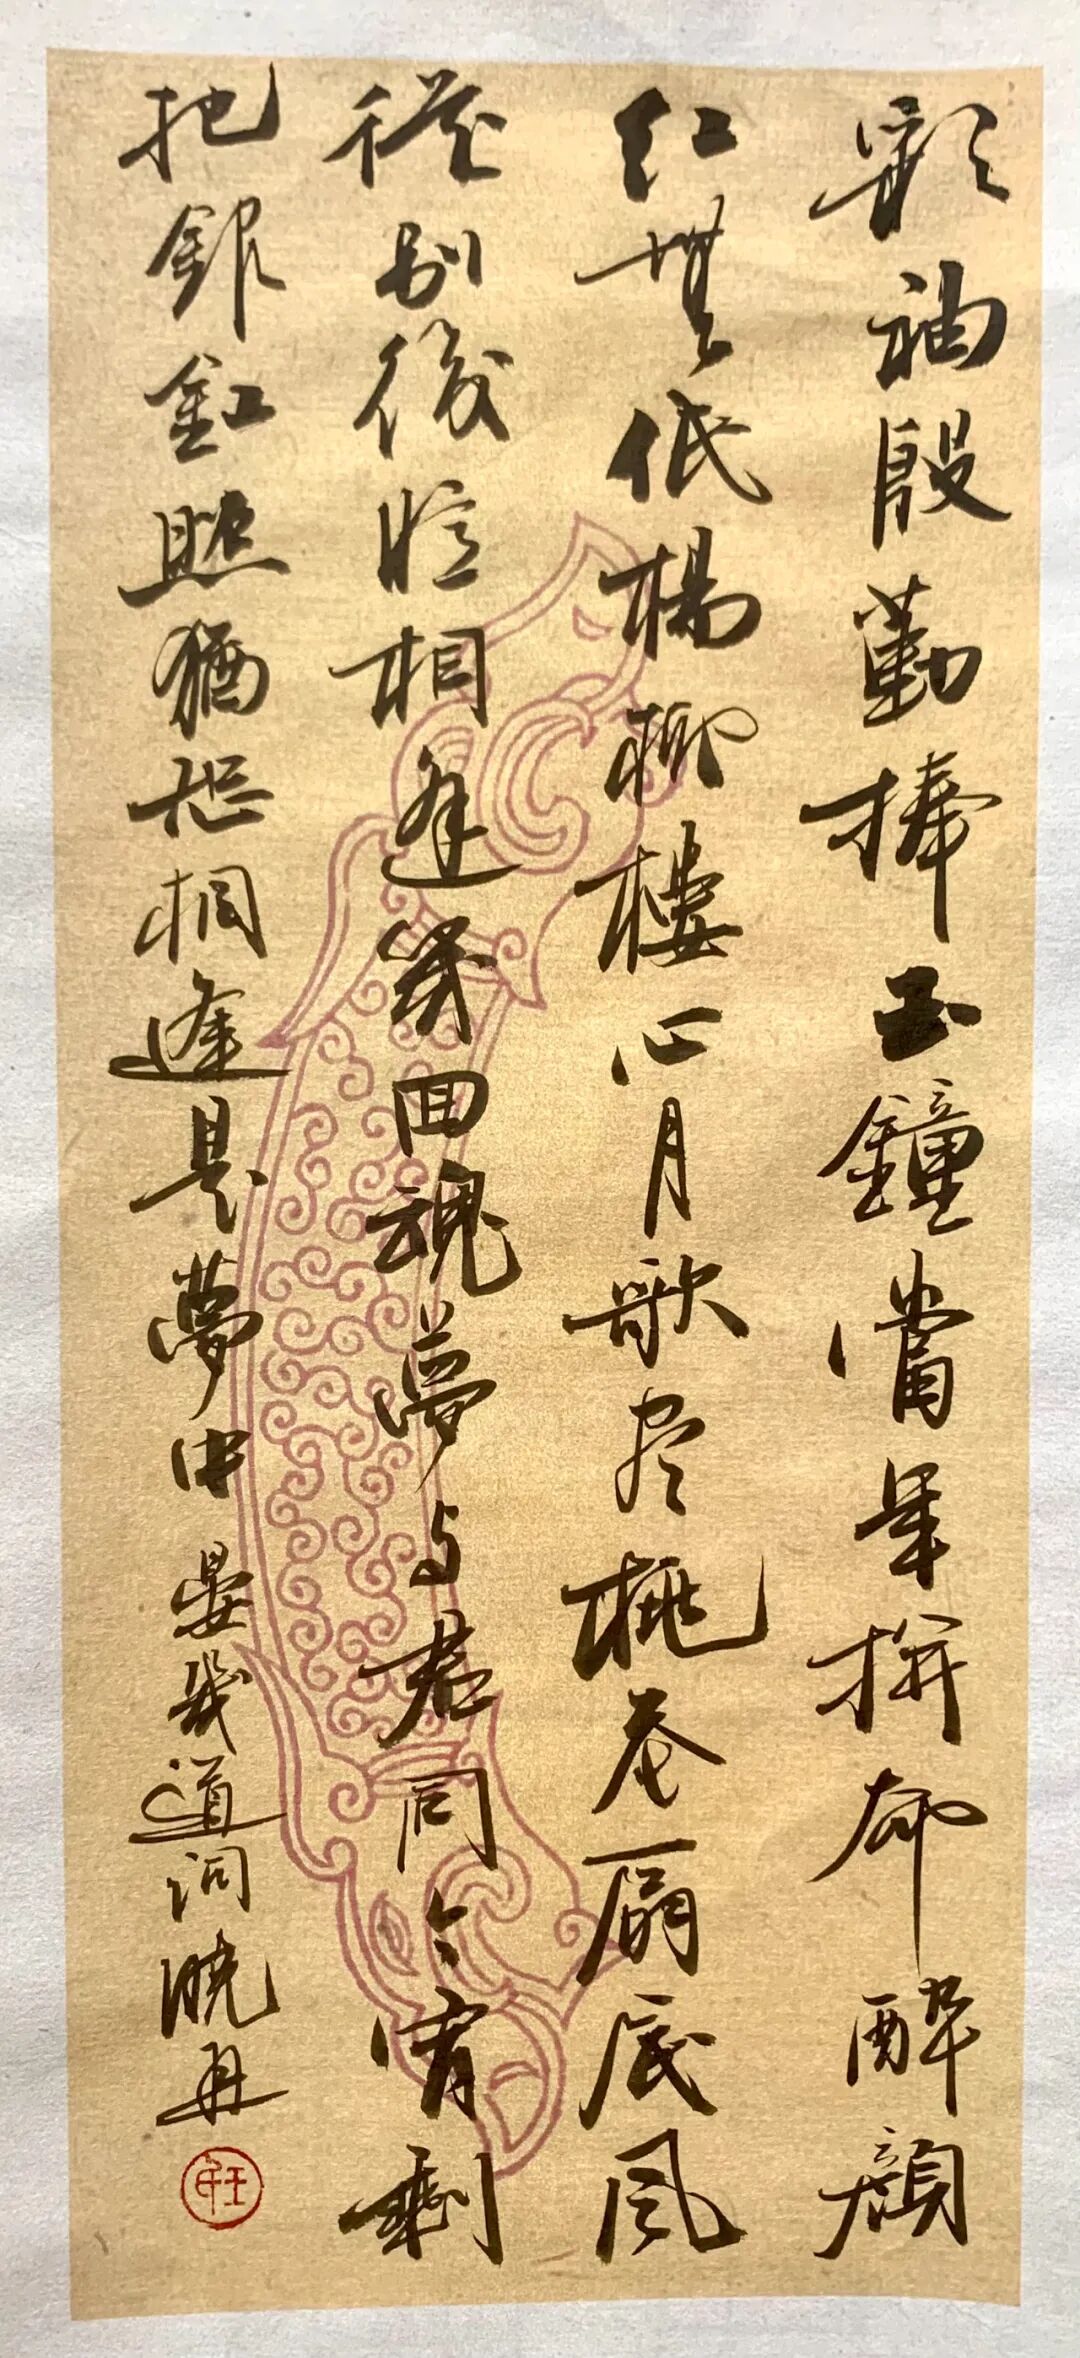 彩袖殷勤捧玉鐘當年拚却醉顏
紅舞低楊柳樓心月歌尽桃花扇底風
從別後憶相逢幾回魂夢与君同今宵剩
把銀釭照猶恐相逢是夢中晏幾道詞曉